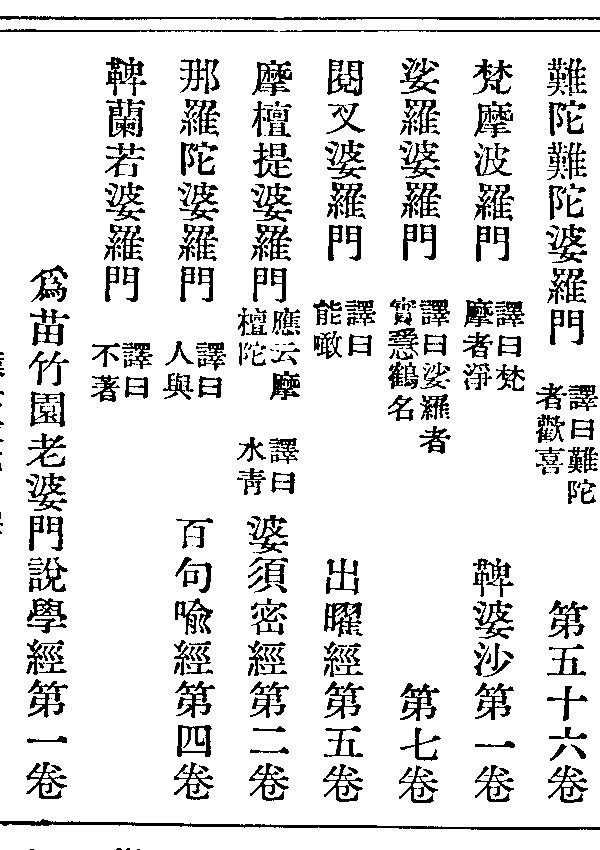 難陀難陀婆羅門 譯曰難陀者歡喜 第五十六卷
梵摩波羅門 譯曰梵摩者淨 鞞婆沙第一卷
娑羅婆羅門 譯曰娑羅者實慧鶴名 第七卷
閱叉婆羅門 譯曰能噉 出曜經第五卷
摩檀提婆羅門 應云摩檀陀 譯曰水青 婆須密經第二卷
那羅陀婆羅門 譯曰人與 百句喻經第四卷
鞞蘭若婆羅門 譯曰不著
爲苗竹園老婆門說學經第一卷